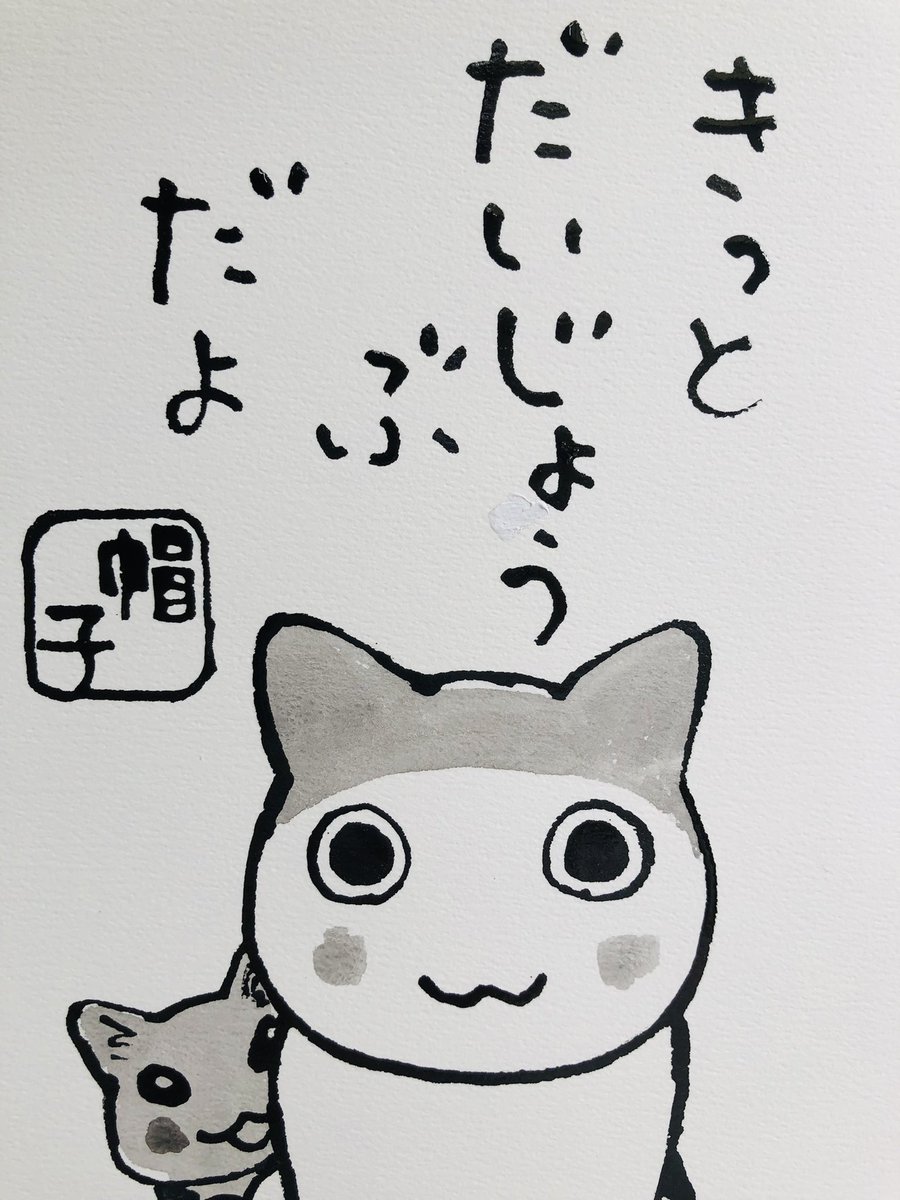 きっと
だいじょう
ぶ
だよ
帽子